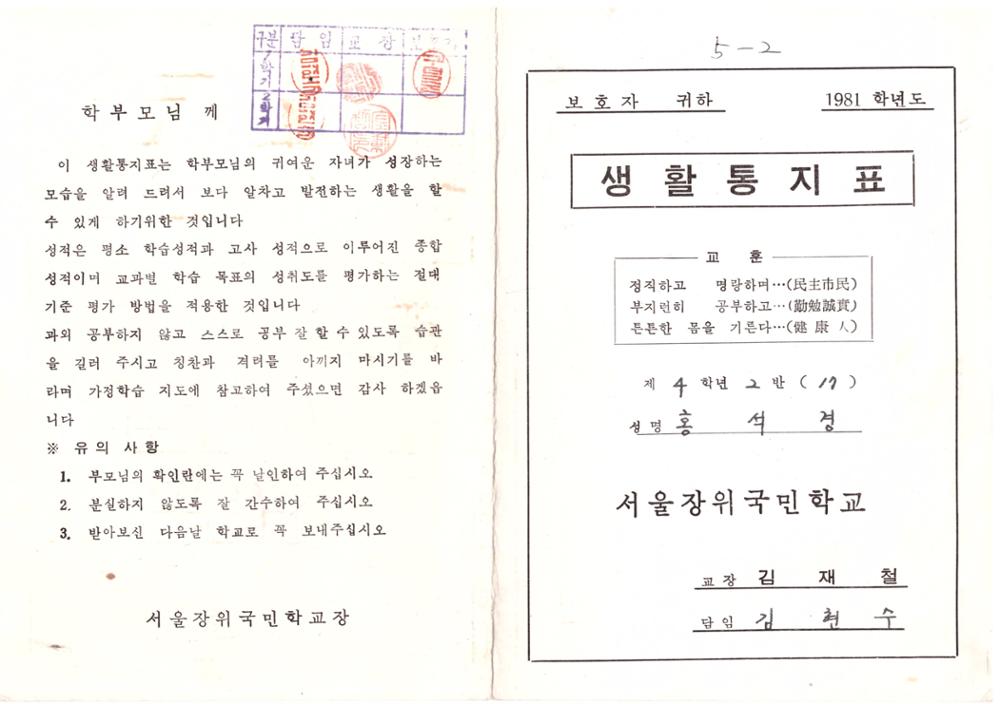 구분 담임 교장 보호자
1학기
2학기
학부모님 께
이 생활통지표는 학부모님의 귀여운 자녀가 성장하는
모습을 알려 드려서 보다 알차고 발전하는 생활을 할
수 있게 하기위한 것입니다
성적은 평소 학습성적과 고사 성적으로 이루어진 종합
성적이며 교과별 학습 목표의 성취도를 평가하는 절대
기준 평가 방법을 적용한 것입니다
과외 공부하지 않고 스스로 공부 잘 할 수 있도록 습관
을 길러 주시고 칭찬과 격려를 아끼지 마시기를 바
라며 가정학습 지도에 참고하여 주셨으면 감사 하겠읍
니다
※ 유의 사항
1. 부모님의 확인란에는 꼭 날인하여 주십시오
2. 분실하지 않도록 잘 간수하여 주십시오
3. 받아보신 다음날 학교로 꼭 보내주십시오
서울장위국민학교장
5-2
보호자 귀하 1981 학년도
생활통지표
교훈
정직하고 명랑하며…(民主市民)
부지런히 공부하고…(勤勉誠實)
튼튼한 몸을 기른다…(健康人)
제 4 학년 2 반 ( 17 )
성명 홍석경
서울장위국민학교
교장 김재철
담임 김현수